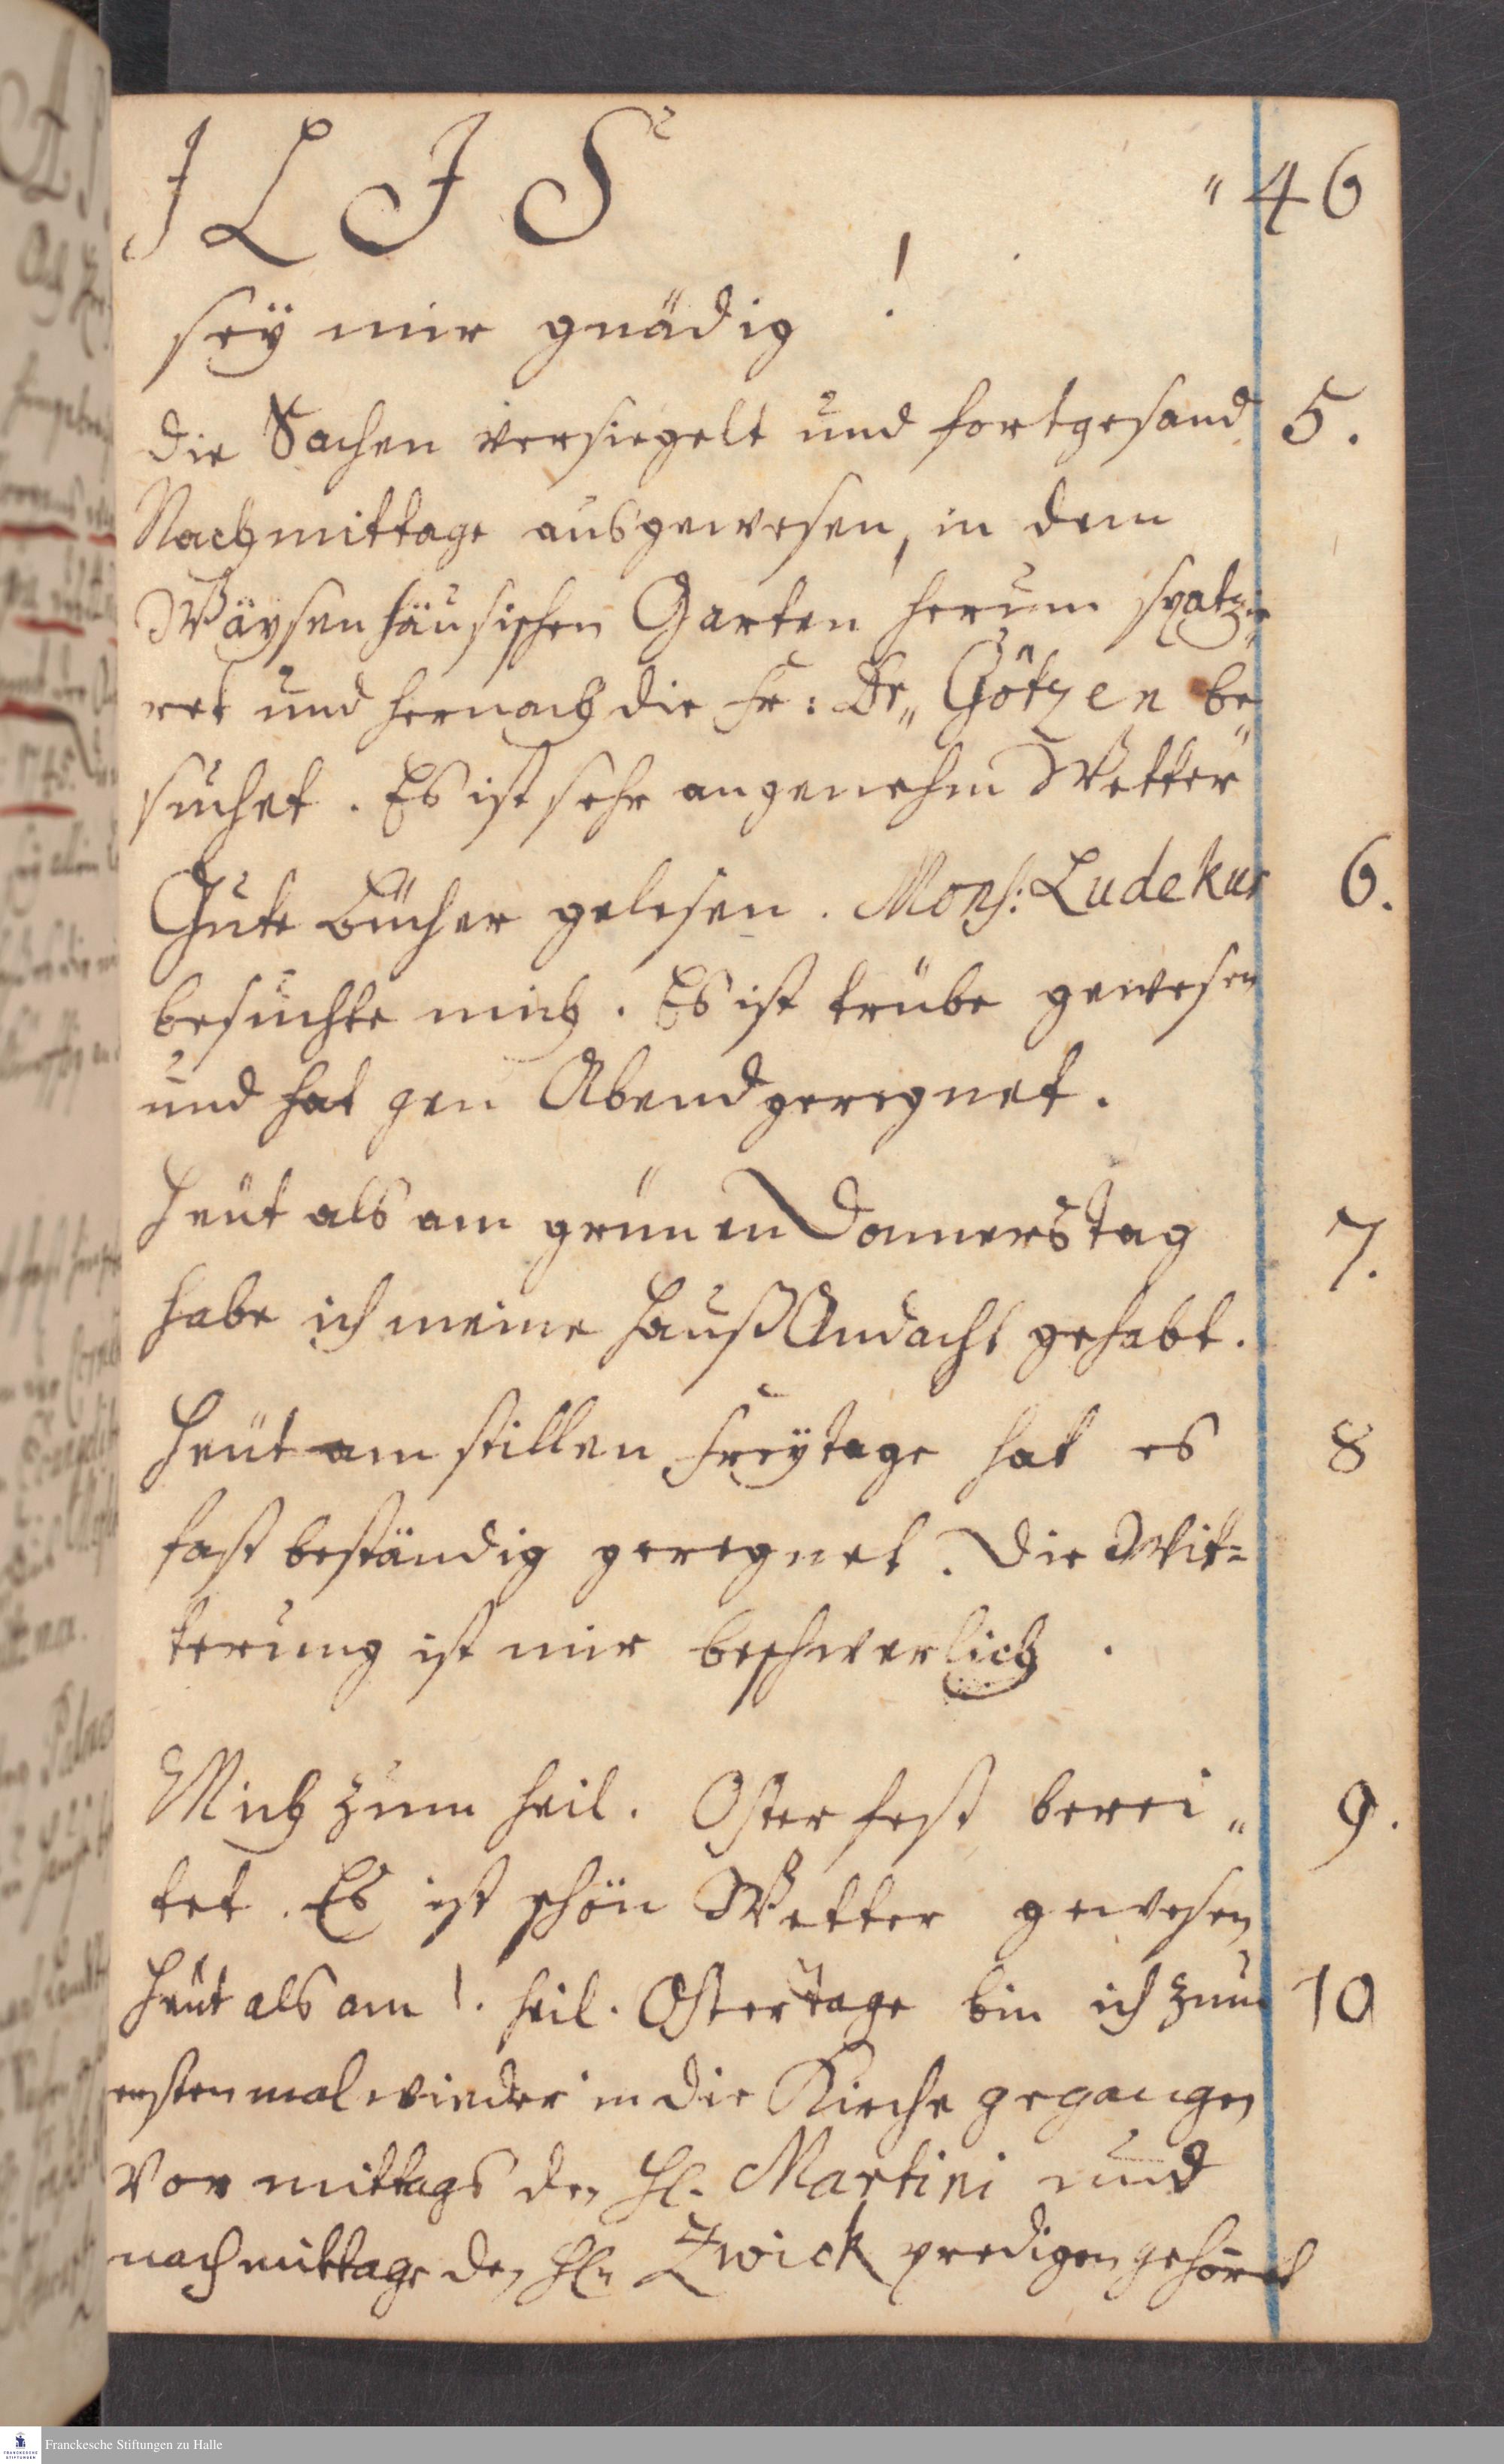 I L J S
„ 46
sey mir gnädig !
die Sachen versiegelt und fortgesand 5.
Nachmittage ausgewesen, in dem
Wäysenhäusischen Garten herum spatzie„
ret und hernach die Fr: Dr„ Götzen be„
suchet. Es ist sehr angenehm Wetter
Gute Bücher gelesen. Mons: Ludekus 6.
besuchte mich. Es ist trübe gewesen
und hat gen Abend geregnet.
Heut als am grünen Donnerstag 7.
habe ich meine Hauß Andacht gehabt.
Heut am stillen Freytage hat es 8
fast beständig geregnet. Die Wit=
terung ist mir beschwerlich .
Mich zum heil. Oster fest berei„ 9.
tet. Es ist schön Wetter gewesen
Heut als am 1. heil. Ostertage bin ich zum 10
ersten mal wieder in die Kirche gegangen
Vormittags den H. Martini und
nachmittage den Hn Zwick predigen gehöret
Franckesche Stiftungen zu Halle